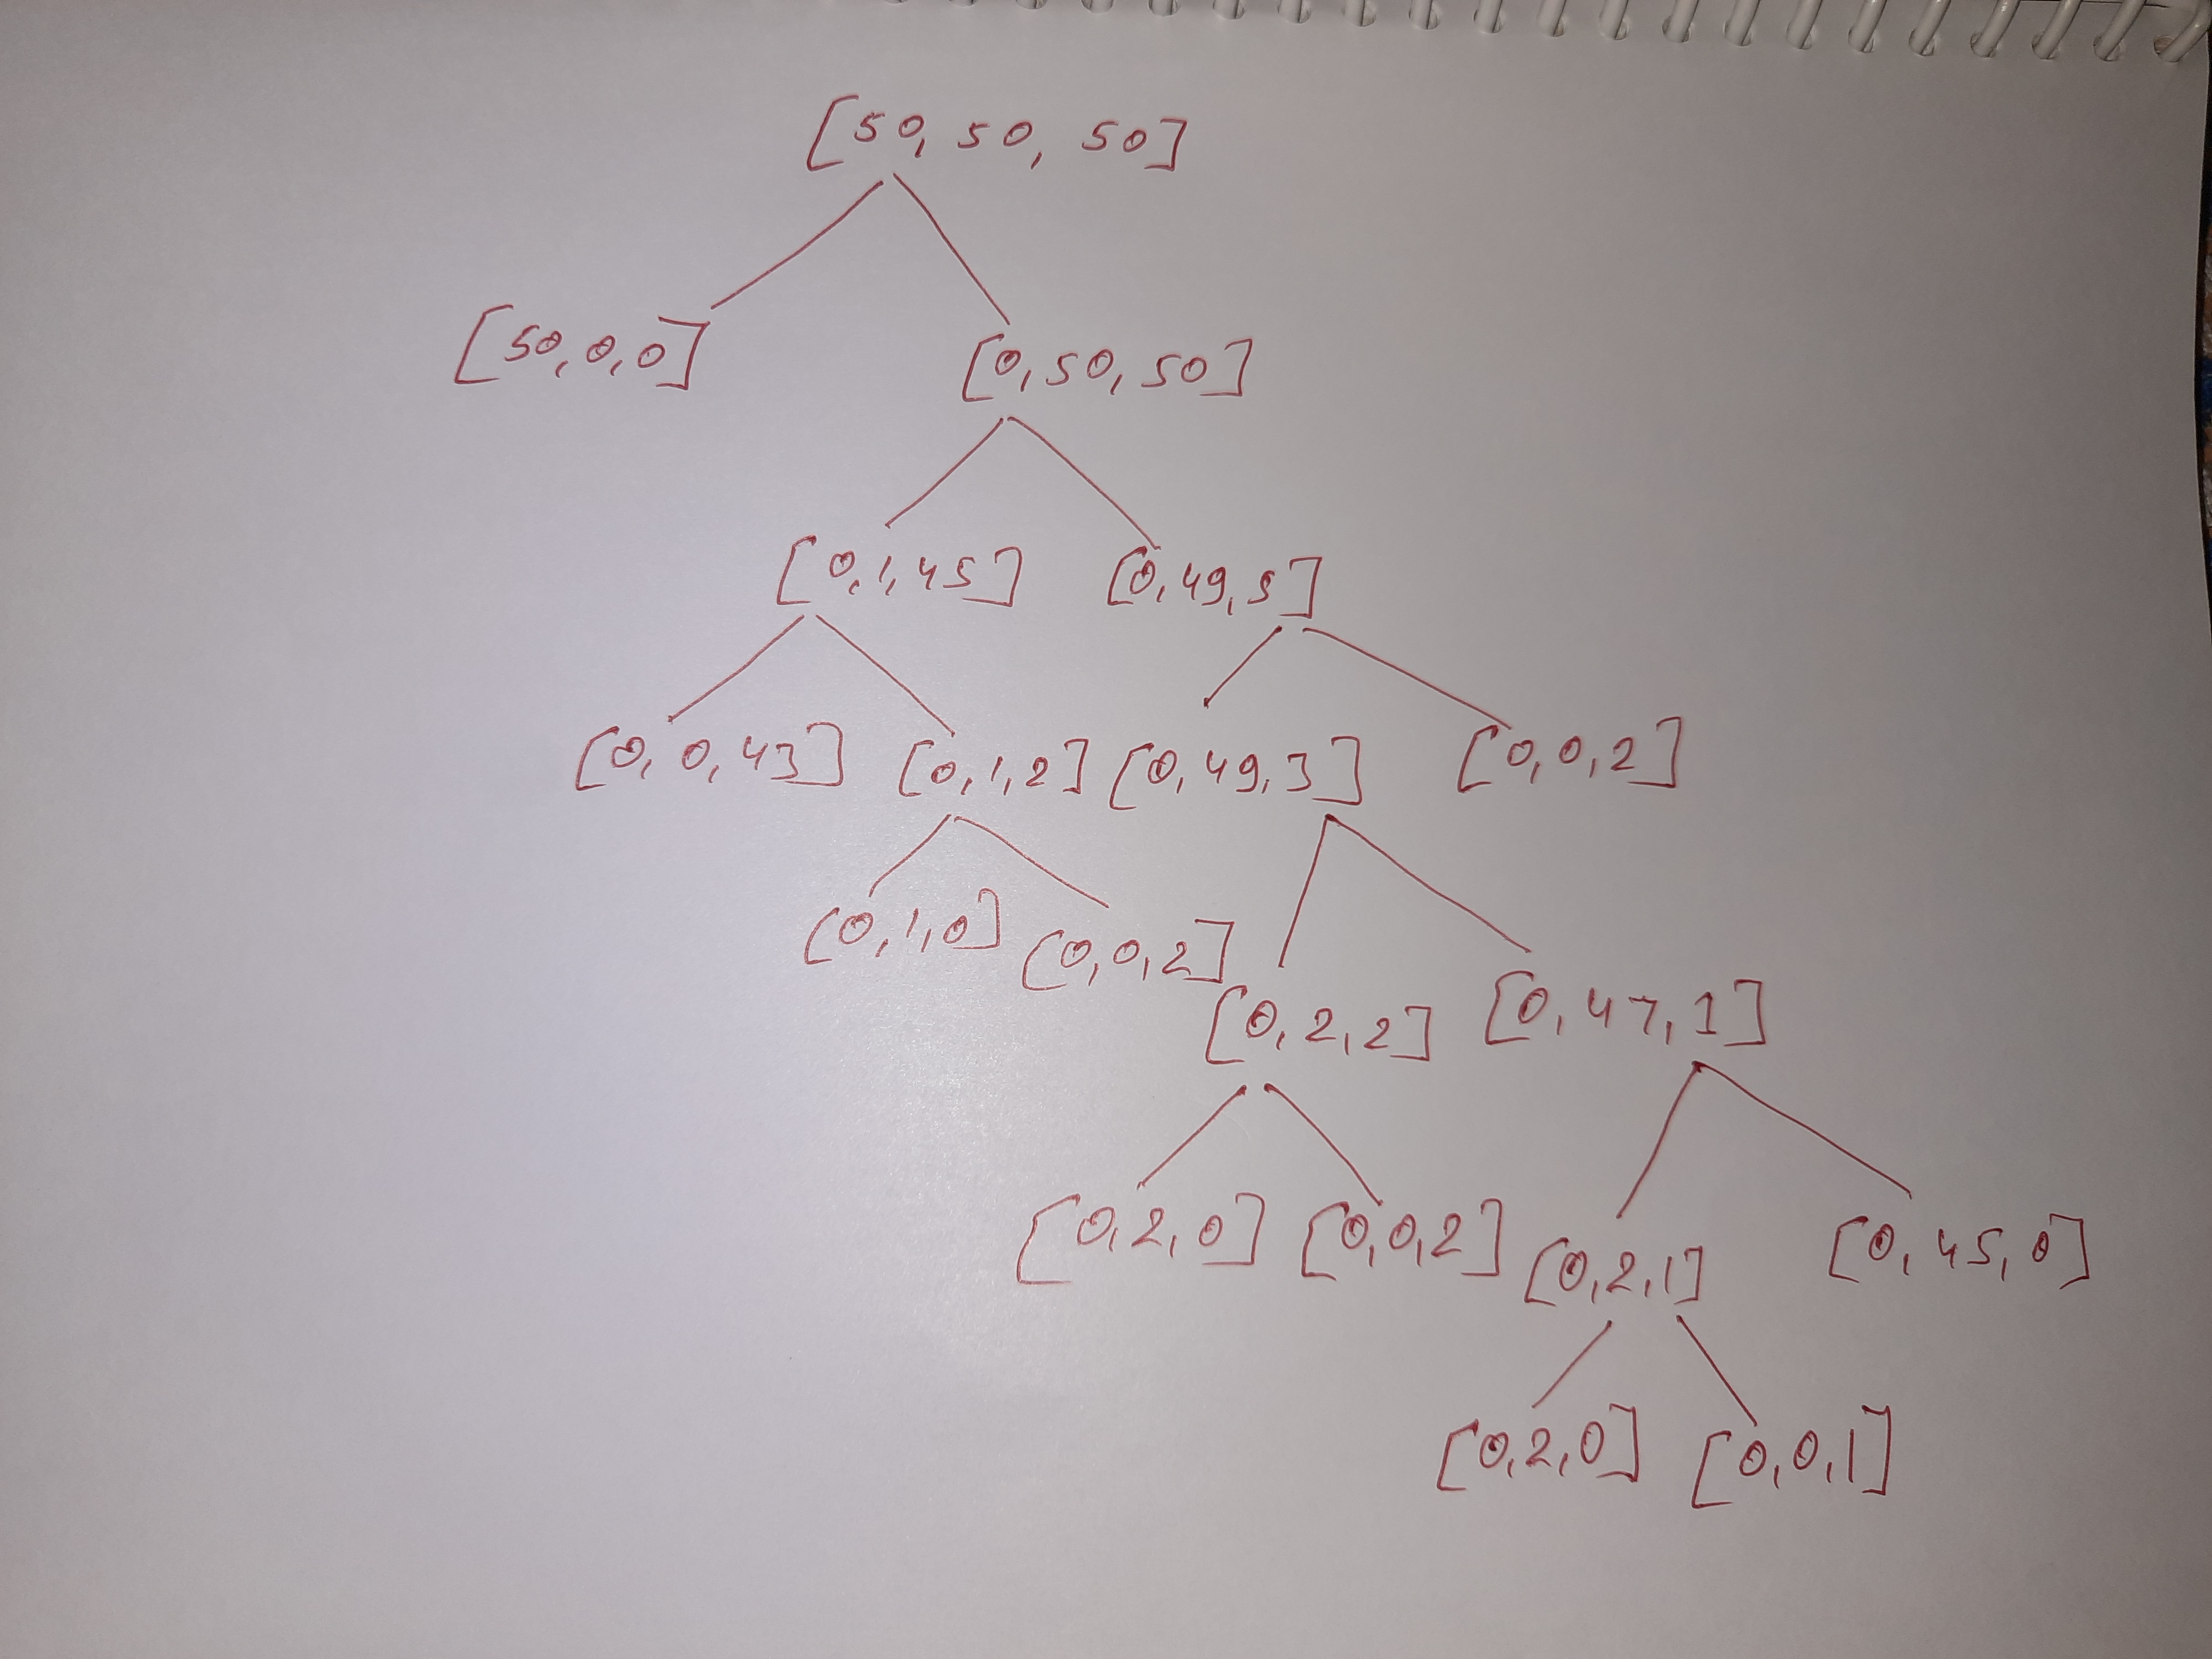 [50, 50, 50]
[50, 0, 0] [0, 50, 50]
[0, 1, 45] [0, 49, 5]
[0, 0, 43] [0, 1, 2] [0, 49, 3] [0, 0, 2]
[0, 1, 0] [0, 0, 2]
[0, 2, 2] [0, 47, 1]
[0, 2, 0] [0, 0, 2] [0, 2, 1] [0, 45, 0]
[0, 2, 0] [0, 0, 1]